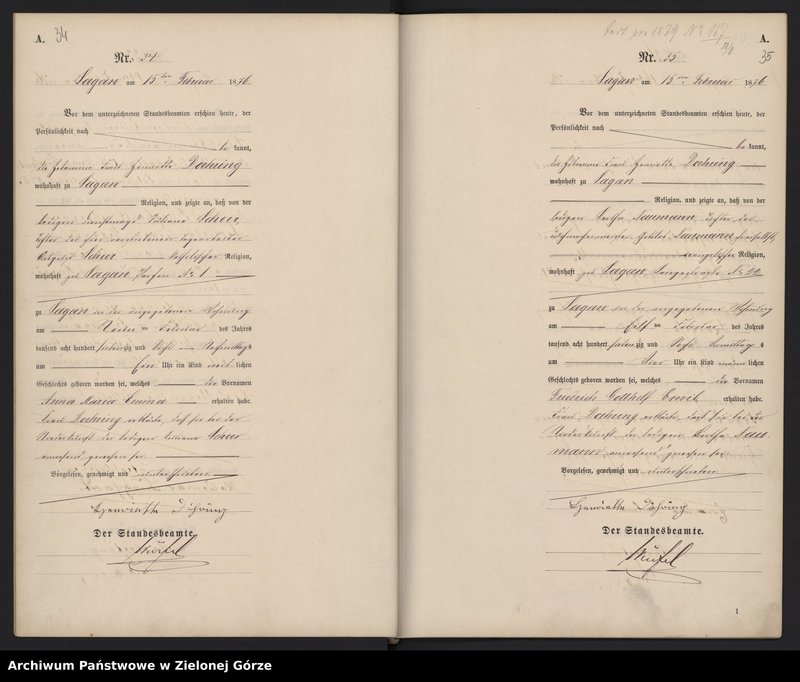 A. 34
Nr. 34
Sagan am 15ten Februar 1876.
Vor dem unterzeichneten Standesbeamten erschien heute, der
Persönlichkeit nach
be kannt,
die Hebamme Frau Henriette Doehring
wohnhaft zu Sagan
Religion, und zeigte an, daß von der
ledigen Dienstmagd Juliane Scheer,
Tochter des hier verstorbenen
Scheer katholischer Religion,
wohnhaft zu Sagan, No 1
zu Sagan in der angegebenen Wohnung
am Februar des Jahres
tausend acht hundert siebenzig und sechs Nachmittags
um Ein Uhr ein Kind weib lichen
Geschlechts geboren worden sei, welches die Vornamen
Anna Maria Emma erhalten habe.
Frau Doehring erklärte, daß sie bei der
Niederkunft der ledigen Juliane Scheer
anwesend gewesen sei.
Vorgelesen, genehmigt und unterschrieben
Henriette Döhring
Der Standesbeamte.
todt pro 1879 No 167
A.
35
Nr. 35
Sagan am 15ten Februar 1876.
Vor dem unterzeichneten Standesbeamten erschien heute, der
Persönlichkeit nach
be kannt,
die Hebamme Frau Henriette Doehring
wohnhaft zu Sagan
Religion, und zeigte an, daß von der
ledigen Bertha Naumann, Tochter des
Naumann, hierselbst,
evangelischer Religion,
wohnhaft zu Sagan, No 22
zu Sagan in der angegebenen Wohnung
am Elf ten Februar des Jahres
tausend acht hundert siebenzig und sechs Vormittags
um Uhr ein Kind männ lichen
Geschlechts geboren worden sei, welches die Vornamen
Friedrich Gotthelf Ernst erhalten habe.
Frau Doehring erklärte, daß sie bei der
Niederkunft der ledigen Bertha Nau
mann, anwesend gewesen sei.
Vorgelesen, genehmigt und unterschrieben
Henriette Döhring
Der Standesbeamte.
1
Archiwum Państwowe w Zielonej Górze